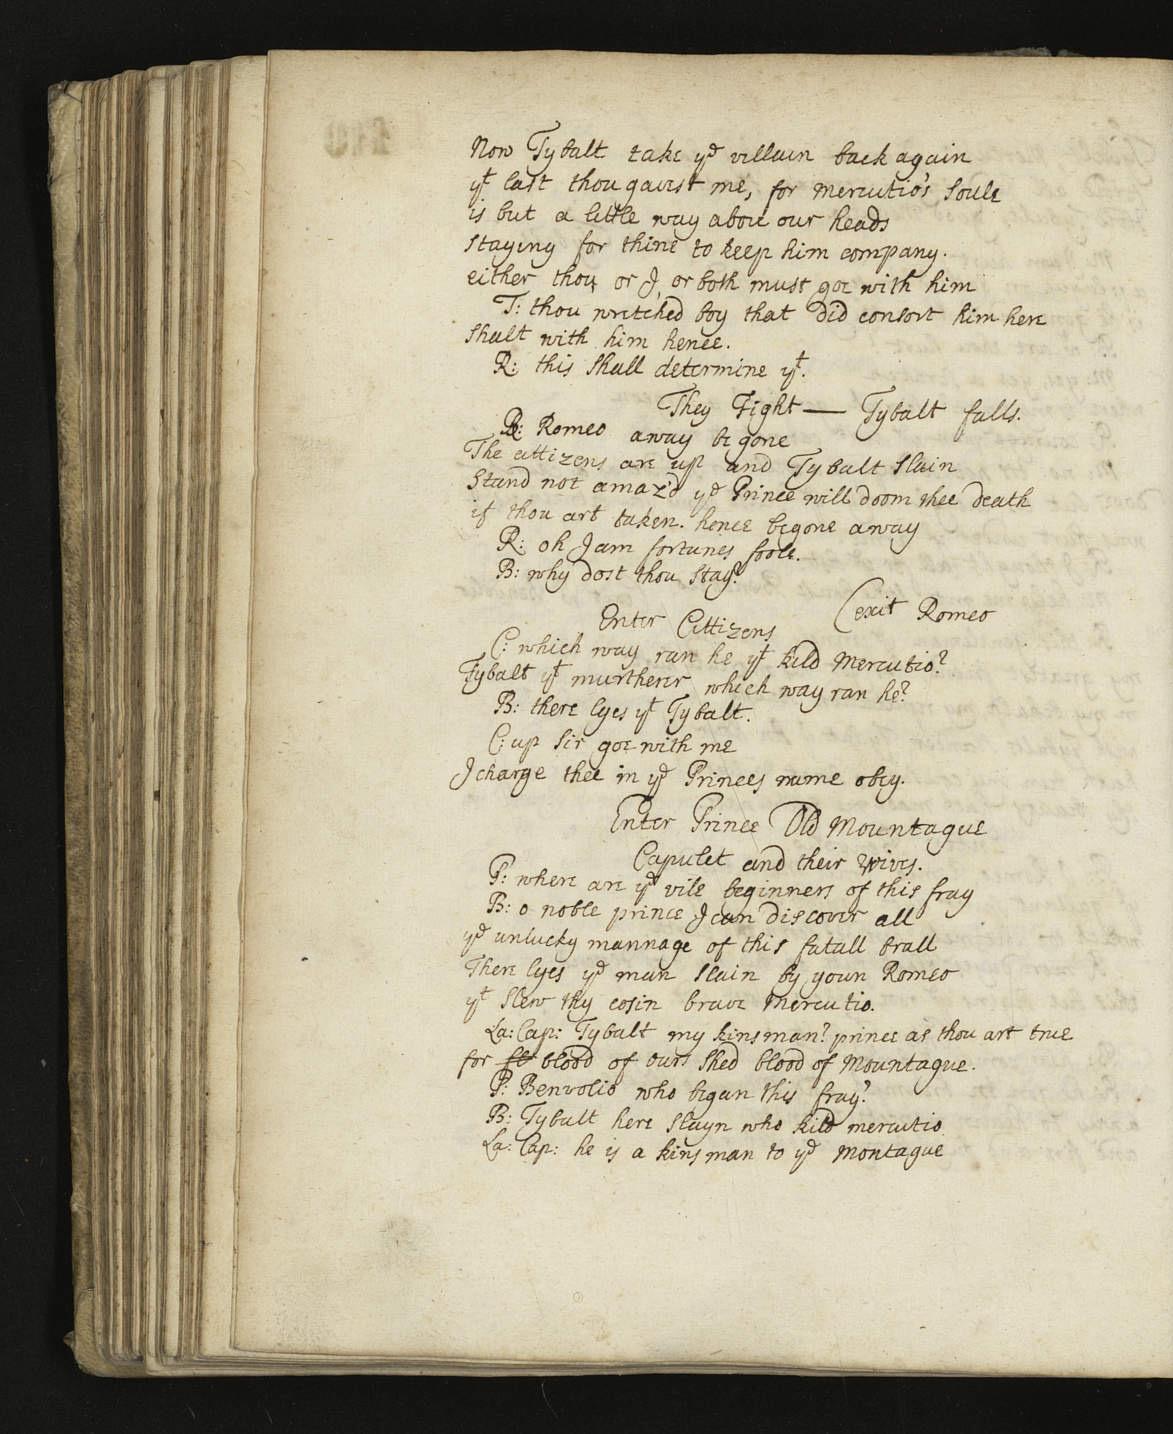 Now Tybalt take yᵉ villain back again
yᵗ last thou gavest me, for Mercutio's soule
is but a little way above our heads
staying for thine to keep him company.
either thou or I, or both must goe with him
T: thou wretched boy that did consort him here
shalt with him hence.
R: this shall determine yᵗ.
They Fight — Tybalt falls.
B: Romeo away be gone
The cittizens are up and Tybalt slain
Stand not amaz'd yᵉ Prince will doom thee death
if thou art taken. hence begone away
R: oh I am fortunes foole.
B: why dost thou stay?
(exit Romeo
Enter Cittizens
C: which way ran he yᵗ kild Mercutio?
Tybalt yᵗ murtherer which way ran he?
B: there lyes yᵗ Tybalt.
C: up sir goe with me
I charge thee in yᵉ Princes name obey.
Enter Prince Old Mountague
Capulet and their Wives.
P: where are yᵉ vile beginners of this fray
B: o noble prince I can discover all
yᵉ unlucky mannage of this fatall brall
There lyes yᵉ man slain by youn Romeo
yᵗ slew thy cosin brave Mercutio.
La: Cap: Tybalt my kinsman? prince as thou art true
for blood of ours shed blood of Mountague.
P: Benvolio who began this fray?
B: Tybalt here slayn who kild mercutio
La: Cap: he is a kinsman to yᵉ Montague